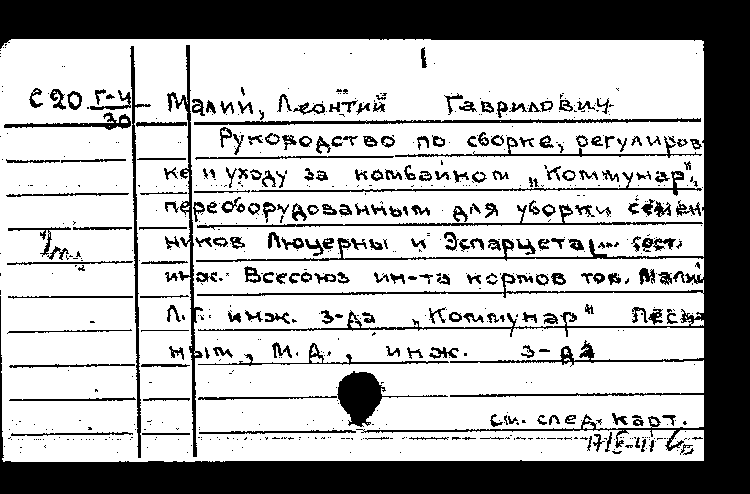 1
С20 Г-4/30 Малий, Леонтий Гаврилович
Руководство по сборке, регулиров-
ке и уходу за комбайном „Коммунар",
переоборудованным для уборки семен-
ников Люцерны и Эспарцета сост.
инж. Всесоюз ин-та кормов тов. Малий
Л.Г. инж. з-да „Коммунар"
ным, М.Д., инж. з-да
см. след. карт.